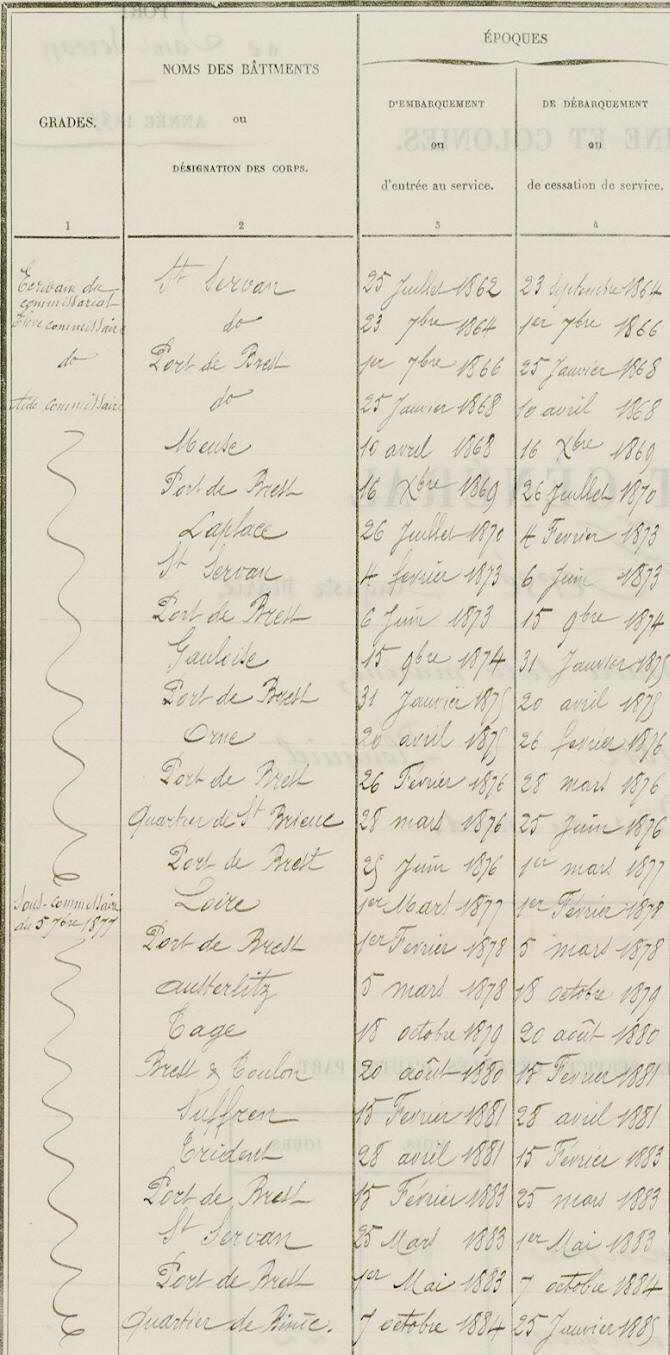 ÉPOQUES
GRADES.
NOMS DES BÂTIMENTS
ou
DÉSIGNATION DES CORPS.
D'EMBARQUEMENT
ou
d'entrée au service.
DE DÉBARQUEMENT
ou
de cessation de service.
1 2 3 4
Ecrivain du
commissariat St Servan 25 Juillet 1862 23 Septembre 1864
Eleve commissaire do 23 7bre 1864 1er 7bre 1866
do Port de Brest 1er 7bre 1866 25 Janvier 1868
Aide commissaire do 25 Janvier 1868 10 avril 1868
Meuse 10 avril 1868 16 Xbre 1869
Port de Brest 16 Xbre 1869 26 Juillet 1870
Laplace 26 Juillet 1870 4 Fevrier 1873
St Servan 4 fevrier 1873 6 Juin 1873
Port de Brest 6 Juin 1873 15 9bre 1874
Gauloise 15 9bre 1874 31 Janvier 1875
Port de Brest 31 Janvier 1875 20 avril 1875
Orne 20 avril 1875 26 fevrier 1876
Port de Brest 26 Fevrier 1876 28 mars 1876
Quartier de St Brieuc 28 mars 1876 25 Juin 1876
Port de Brest 25 Juin 1876 1er mars 1877
Sous-commissaire
du 5 7bre 1877 Loire 1er Mars 1877 1er Février 1878
Port de Brest 1er Fevrier 1878 5 mars 1878
Austerlitz 5 mars 1878 18 octobre 1879
Tage 18 octobre 1879 20 août 1880
Brest & Toulon 20 août 1880 15 Fevrier 1881
Suffren 15 Fevrier 1881 28 avril 1881
Trident 28 avril 1881 15 Février 1883
Port de Brest 15 Février 1883 25 mars 1883
St Servan 25 Mars 1883 1er Mai 1883
Port de Brest 1er Mai 1883 7 octobre 1884
Quartier de Binic. 7 octobre 1884 25 Janvier 1885